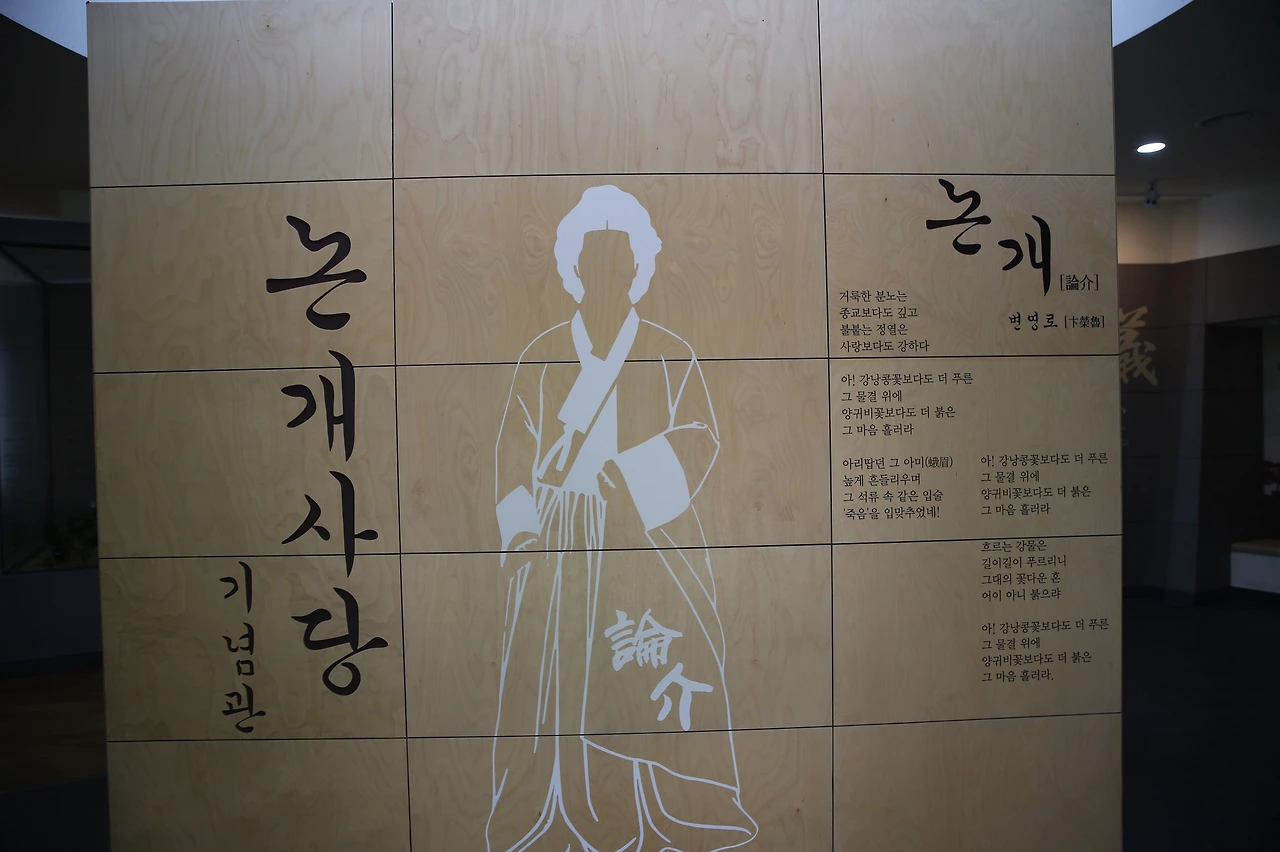 논개사당
기념관
論介
논개
[論介]
변영로 [卞榮魯]
거룩한 분노는
종교보다도 깊고
불붙는 정열은
사랑보다도 강하다
아! 강낭콩꽃보다도 더 푸른
그 물결 위에
양귀비꽃보다도 더 붉은
그 마음 흘러라
아리땁던 그 아미(蛾眉)
높게 흔들리우며
그 석류 속 같은 입술
'죽음'을 입맞추었네!
아! 강낭콩꽃보다도 더 푸른
그 물결 위에
양귀비꽃보다도 더 붉은
그 마음 흘러라
흐르는 강물은
길이길이 푸르리니
그대의 꽃다운 혼
어이 아니 붉으랴
아! 강낭콩꽃보다도 더 푸른
그 물결 위에
양귀비꽃보다도 더 붉은
그 마음 흘러라.